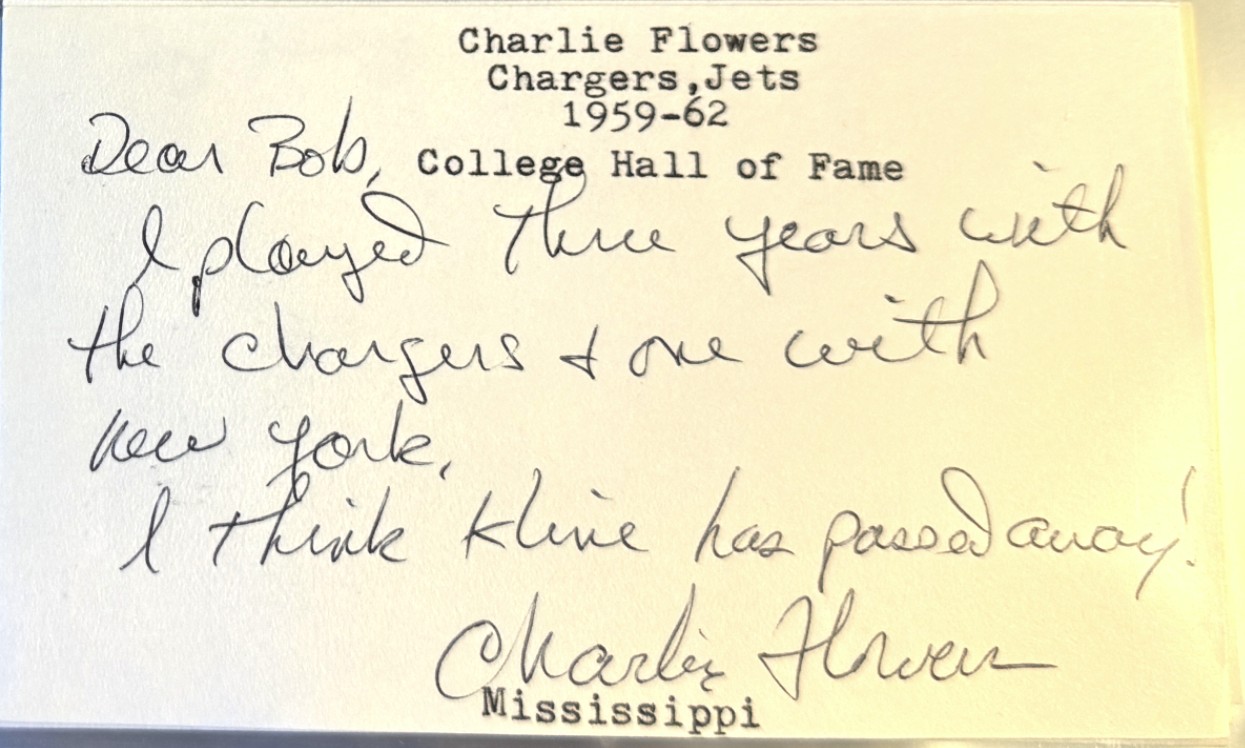 Charlie Flowers
Chargers,Jets
1959-62
College Hall of Fame
Dear Bob,
I played three years with
the chargers & one with
new york.
I think Kline has passed away!
Charlie Flowers
Mississippi